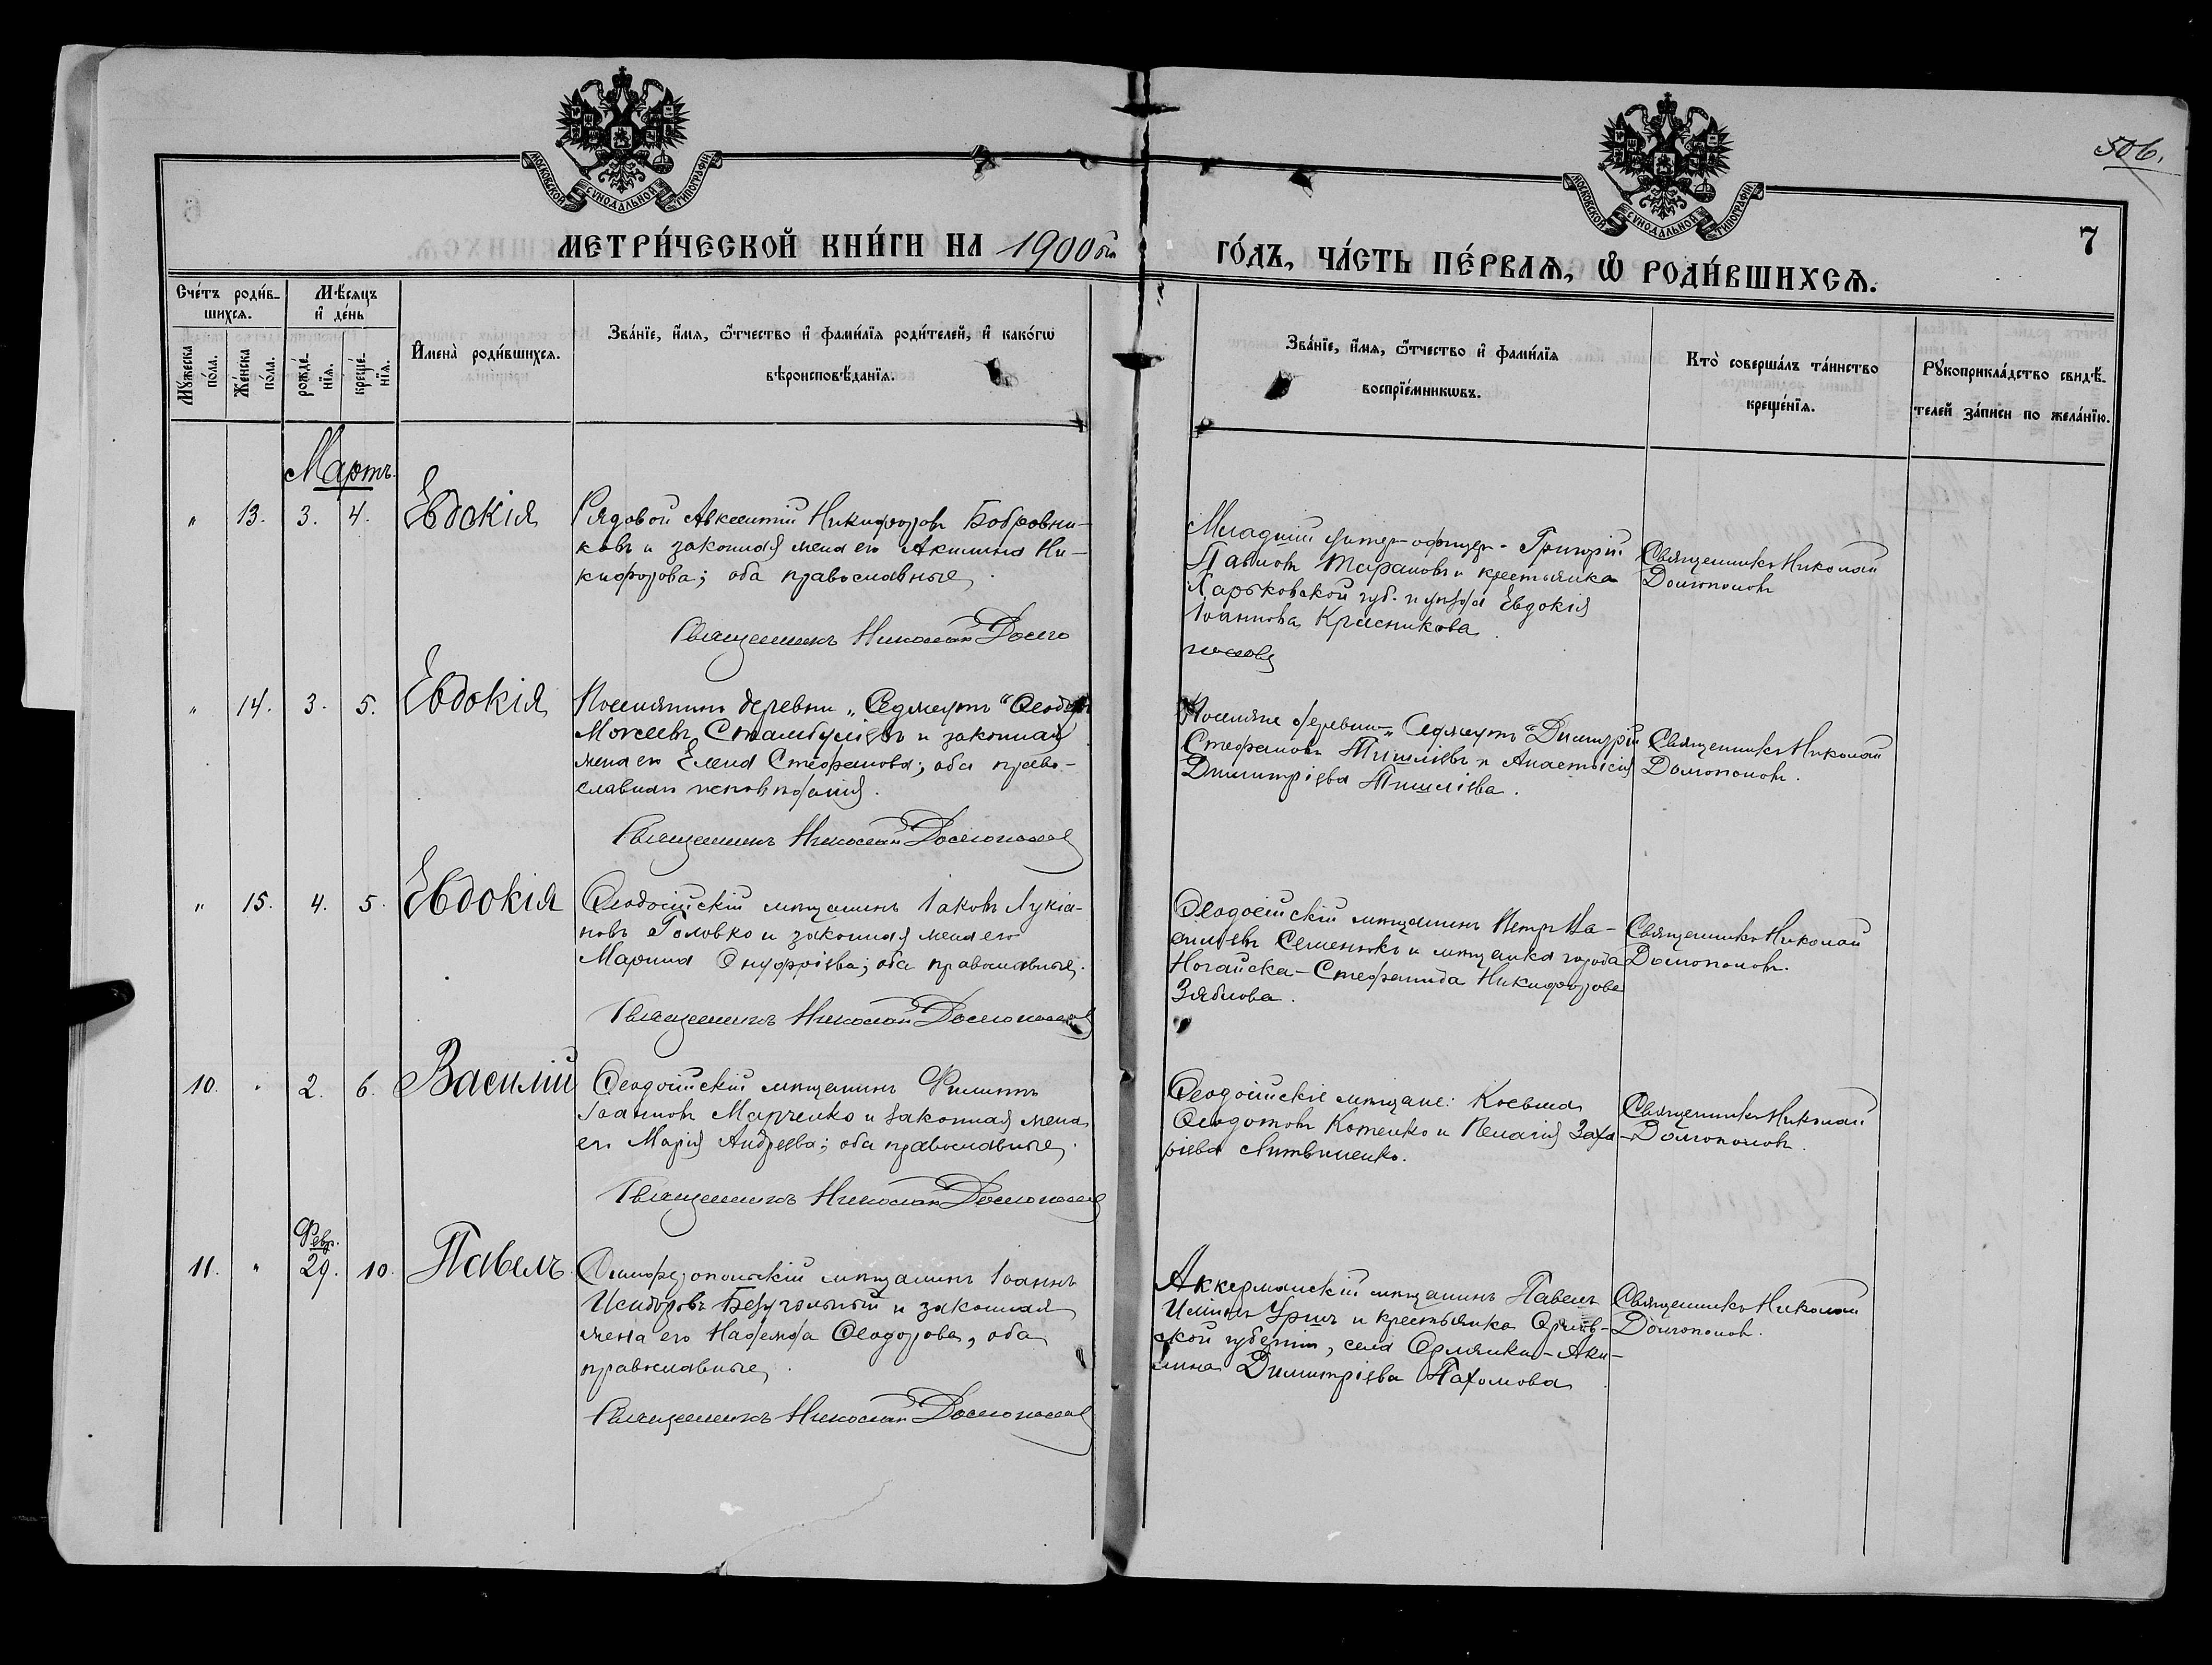 506.
МОСКОВСКОЙ СѴНОДАЛЬНОЙ ТИПОГРАФІИ
МОСКОВСКОЙ СѴНОДАЛЬНОЙ ТИПОГРАФІИ
7
МЕТРИ́ЧЕСКОЙ КНИ́ГИ НА 1900ый
ГО́ДЪ, ЧА́СТЬ ПЕ́РВАѦ, Ѽ РОДИ́ВШИХСѦ.
Сче́тъ роди́в-
шихсѧ.
Мꙋ́жеска по́ла.
Же́нска по́ла.
Мѣ́сѧцъ
и҆ де́нь
рожде́-
нїѧ.
креще́-
нїѧ.
И҆мена̀ роди́вшихсѧ.
Зва́нїе, и҆́мѧ, ѻ҆́тчество и҆ фами́лїѧ роди́телей, и҆ како́гѡ
вѣроисповѣ́данїѧ.
Зва́нїе, и҆́мѧ, ѻ҆́тчество и҆ фами́лїѧ
воспрїе́мникѡвъ.
Кто̀ соверша́лъ та́инство
креще́нїѧ.
Рꙋкоприкла́дство свидѣ́-
телей за́писи по жела́нїю.
Мартъ.
" 13. 3. 4. Евдокія
Рядовой Авксентій Никифоровъ Бобровни-
ковъ и законная жена его Акилина Ни-
кифорова; оба православные.
Священникъ Николай Долго
Младшій унтер-офицер - Григорій
Павловъ Тарановъ и крестьянка
Харьковской губ. и уѣзда Евдокія
Іоаннова Красникова.
половъ
Священникъ Николай
Долгополовъ
" 14. 3. 5. Евдокія
Поселянинъ деревни „Седжеутъ" Ѳеодоръ
Моисеевъ Стамбуліевъ и законная
жена его Елена Стефанова; оба право-
славнаго исповѣданія.
Священникъ Николай Долгополовъ
Поселяне деревни - „Седжеутъ" Димитрій
Стефановъ Тишліевъ и Анастасія
Димитріева Тишліева.
Священникъ Николай
Долгополовъ.
" 15. 4. 5. Евдокія
Ѳеодосійскій мѣщанинъ Іаковъ Лукіа-
новъ Головко и законная жена его
Марина Онуфріева; оба православные.
Священникъ Николай Долгополовъ
Ѳеодосійскій мѣщанинъ Петръ Ва-
сильевъ Семенюкъ и мѣщанка города
Ногайска - Стефанида Никифорова
Зяблова.
Священникъ Николай
Долгополовъ.
10. " 2. 6. Василій
Ѳеодосійскій мѣщанинъ Филиппъ
Іоанновъ Марченко и законная жена
его Марія Андреева; оба православные.
Священникъ Николай Долгополовъ
Ѳеодосійскіе мѣщане:
Ѳеодотовъ Котенко и Пелагія Заха-
ріева Литвиненко.
Священникъ Николай
Долгополовъ.
Февр.
11. " 29. 10. Павелъ.
Симферопольскій мѣщанинъ Іоаннъ
Исидоровъ Безугольный и законная
жена его Надежда Ѳеодорова, оба
православные.
Священникъ Николай Долгополовъ
Аккерманскій мѣщанинъ Павелъ
и крестьянка Орлов-
ской губерніи, села - Аки-
лина Димитріева Пахомова.
Священникъ Николай
Долгополовъ.